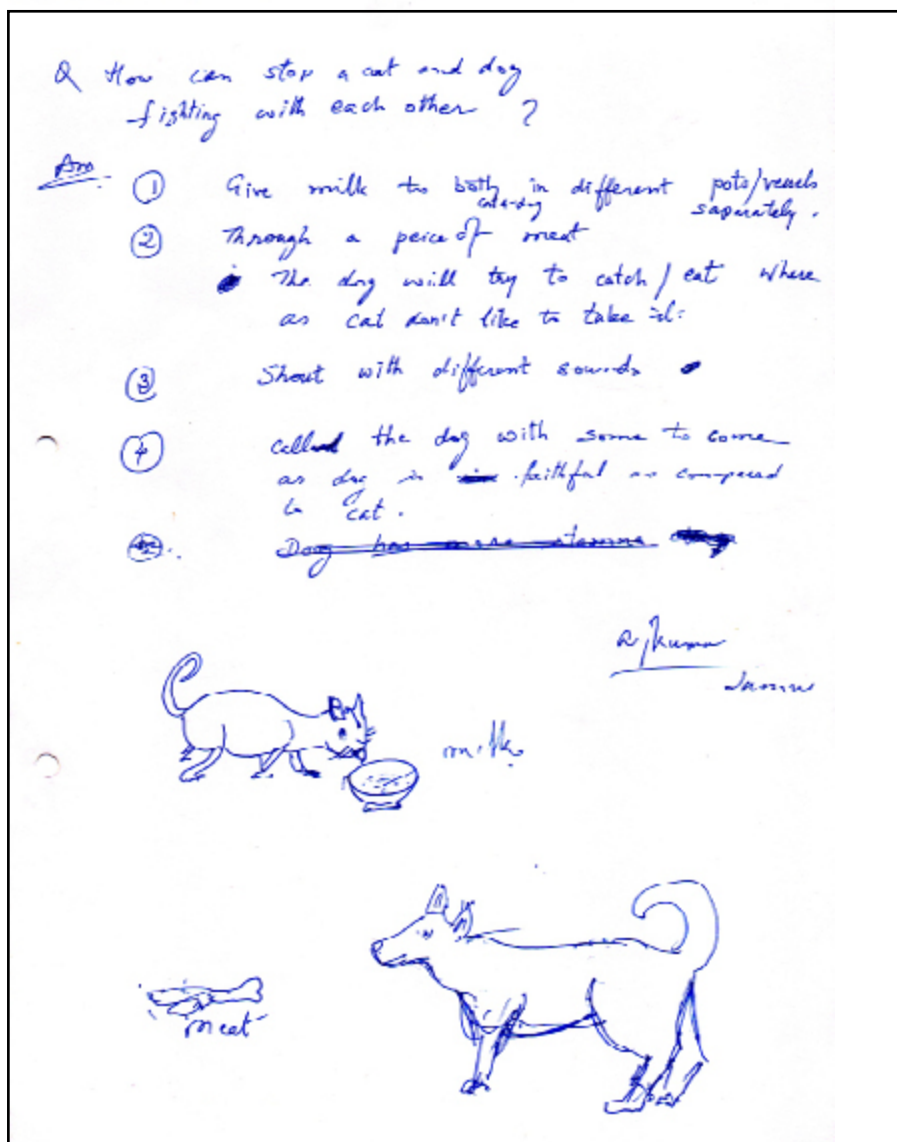 Q How can stop a cat and dog
fighting with each other ?
Ans ① Give milk to both in different pots/vessels
cat-dog saparately.
② Through a peice of meat
The dog will try to catch/eat where
as cat don't like to take it.
③ Shout with different sounds
④ call the dog with some to come
as dog is faithful as compared
to cat.
Dog has more stamina
Kumar
milk
meat